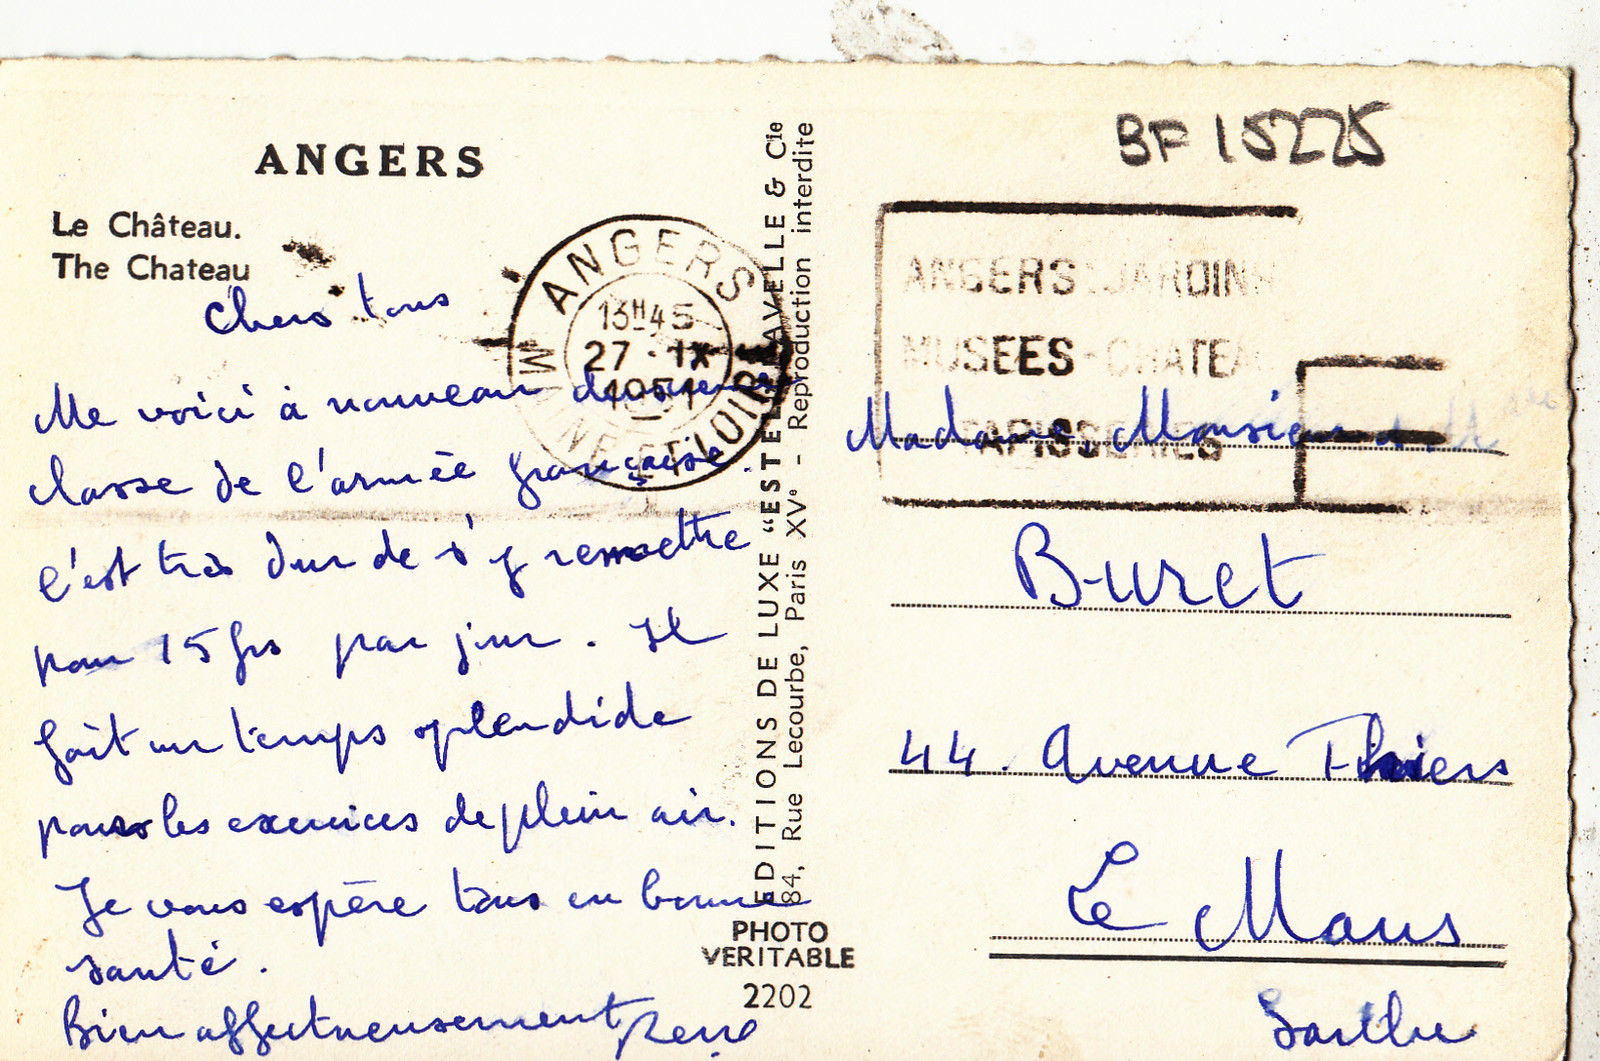 BF 15225
ANGERS
Le Château.
The Chateau
ANGERS
13H45
27 - IX
1951
MAINE ET LOIRE
ANGERS JARDINS
MUSEES - CHATEAU
TAPISSERIES
Chers tous
Me voici à nouveau deuxième
classe de l'armée française.
C'est très dur de s'y remettre
pour 15 frs par jour. Il
fait un temps splendide
pour les exercices de plein air.
Je vous espère tous en bonne
santé.
Bien affectueusement René
EDITIONS DE LUXE "ESTEL" LAVELLE & Cie
84, Rue Lecourbe, Paris XVe - Reproduction interdite
PHOTO
VERITABLE
2202
Madame, Monsieur
Buret
44. Avenue Thiers
Le Mans
Sarthe